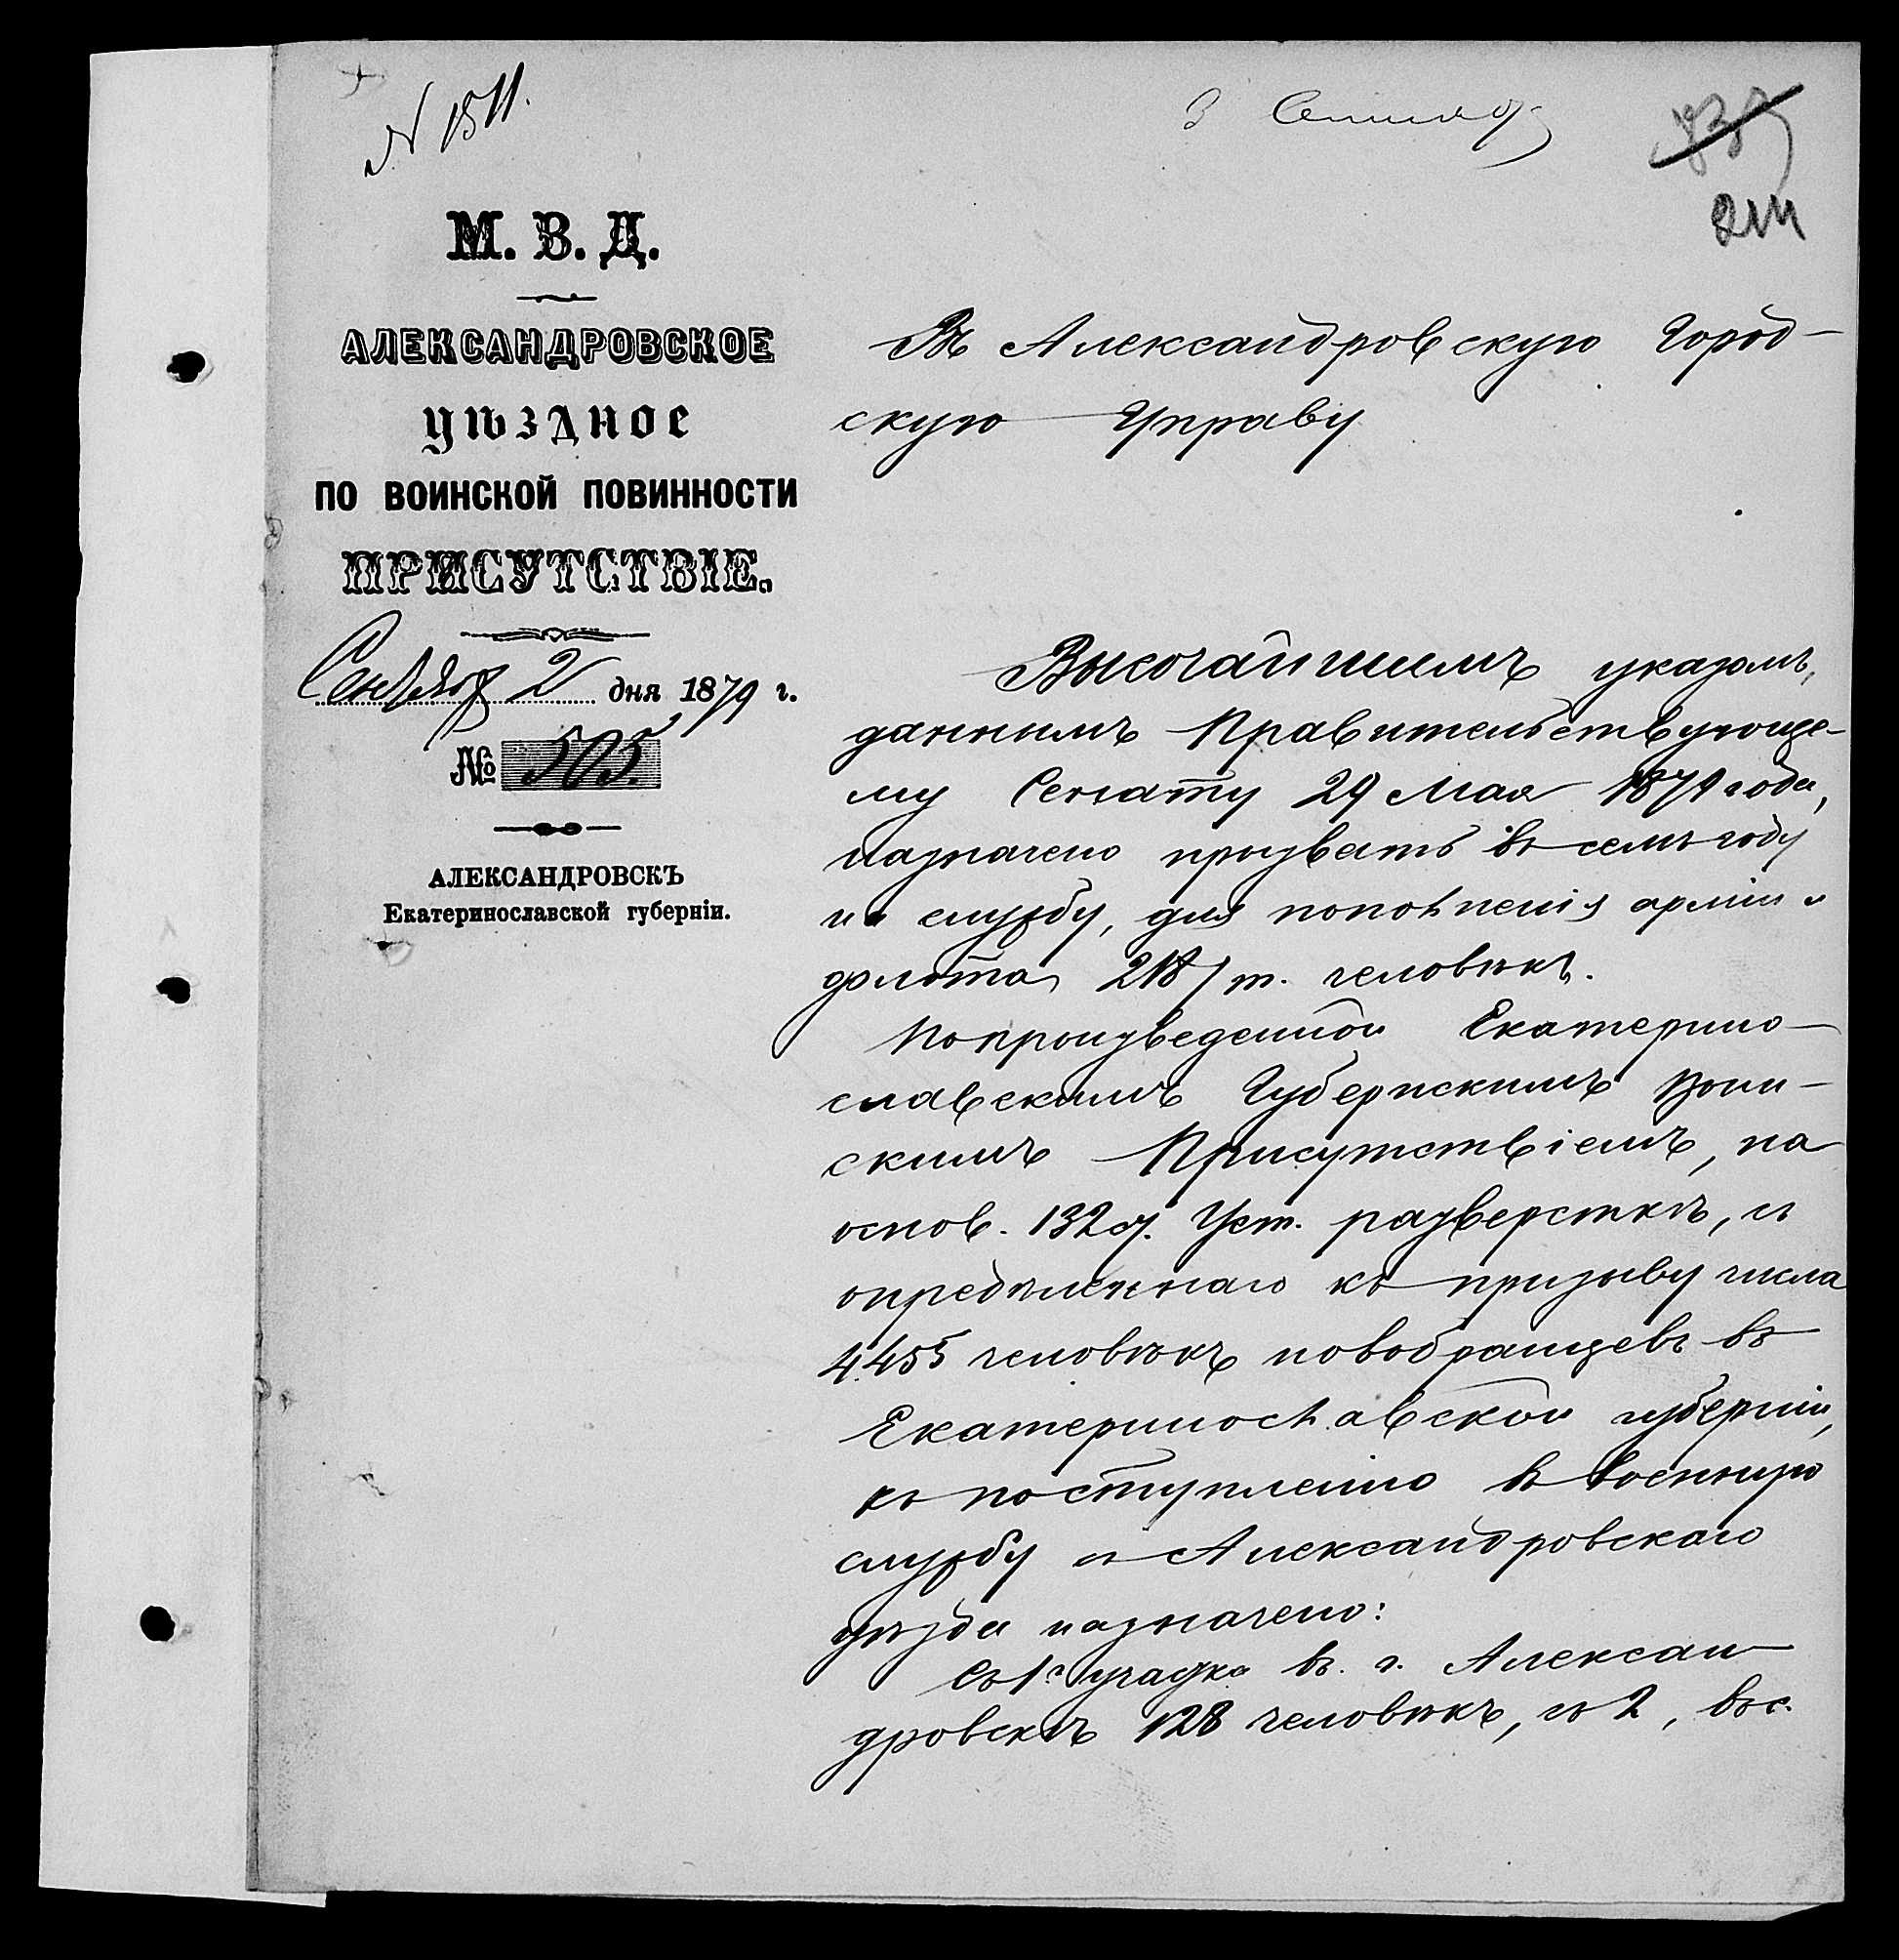 № 1511.
3 Сентяб
214
М. В. Д.
АЛЕКСАНДРОВСКОЕ
УѢЗДНОЕ
ПО ВОИНСКОЙ ПОВИННОСТИ
ПРИСУТСТВІЕ.
Сентябр 2 дня 1879 г.
№ 505.
АЛЕКСАНДРОВСКЪ
Екатеринославской губерніи.
Въ Александровскую Город-
скую Управу
Высочайшимъ указомъ,
даннымъ Правительствующе-
му Сенату 29 Мая 1879 года,
назначено призвать въ семъ году
на службу, для пополненія арміи и
флота, 218/т. человѣкъ.
По произведенной Екатерино-
славскимъ Губернскимъ Воин-
скимъ Присутствіемъ, на
основ. 132 ст. Уст. разверсткѣ, съ
опредѣленнаго къ призыву числа
4455 человѣкъ новобранцевъ въ
Екатеринославской губерніи,
къ поступленію въ военную
службу съ Александровскаго
уѣзда назначено:
Съ 1го участка въ г. Алексан-
дровскѣ 128 человѣкъ, съ 2, въ с.